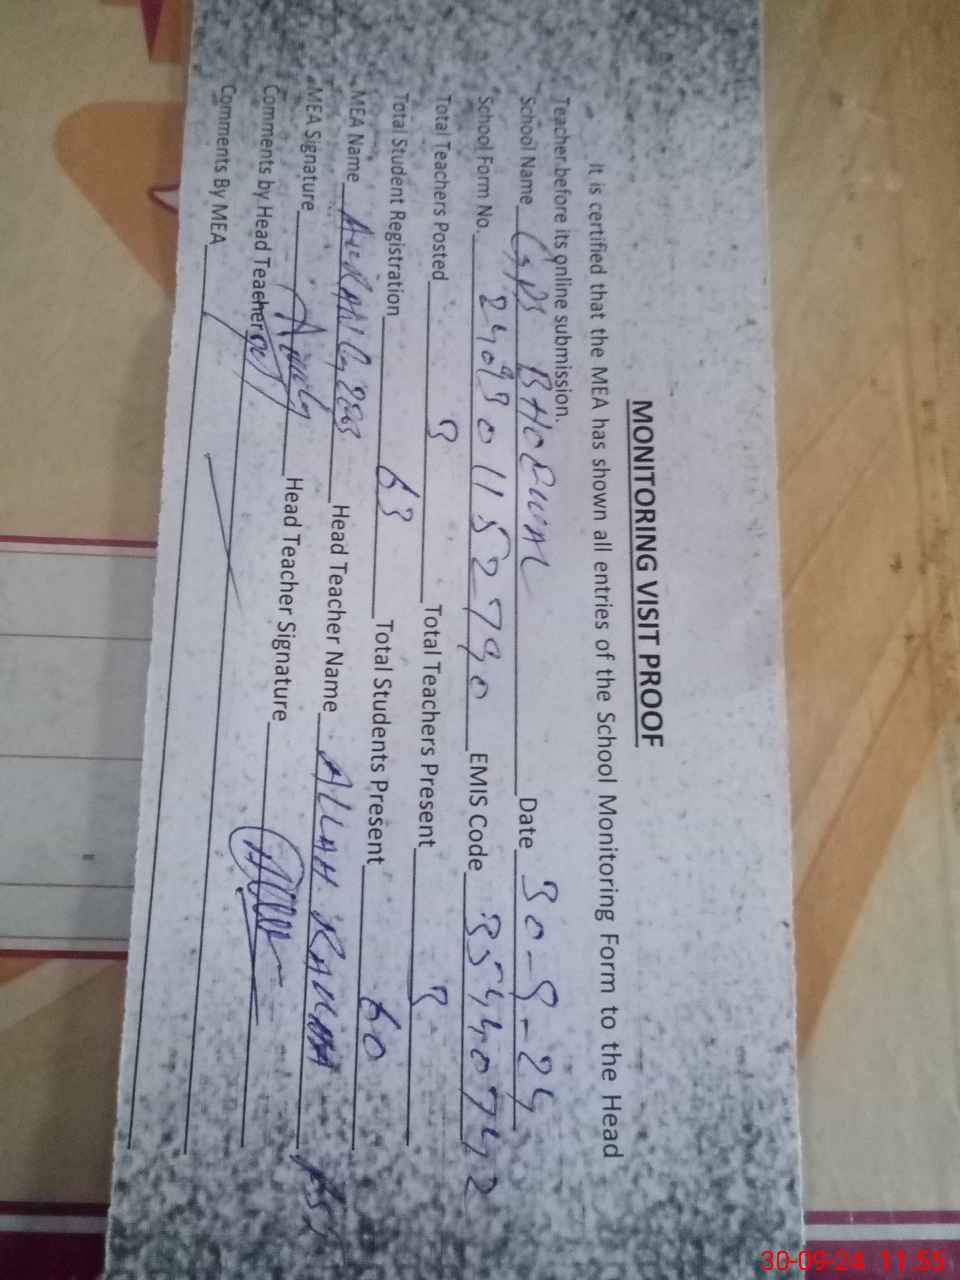 MONITORING VISIT PROOF
It is certified that the MEA has shown all entries of the School Monitoring Form to the Head
Teacher before its online submission.
School Name GPS Date 30-9-24
School Form No. 2409301152790 EMIS Code 35440742
Total Teachers Posted 3 Total Teachers Present 3
Total Student Registration 63 Total Students Present 60
MEA Name Head Teacher Name ALLAH RAKHA PST
MEA Signature Head Teacher Signature
Comments by Head Teacher
Comments By MEA
30-09-24 11:55